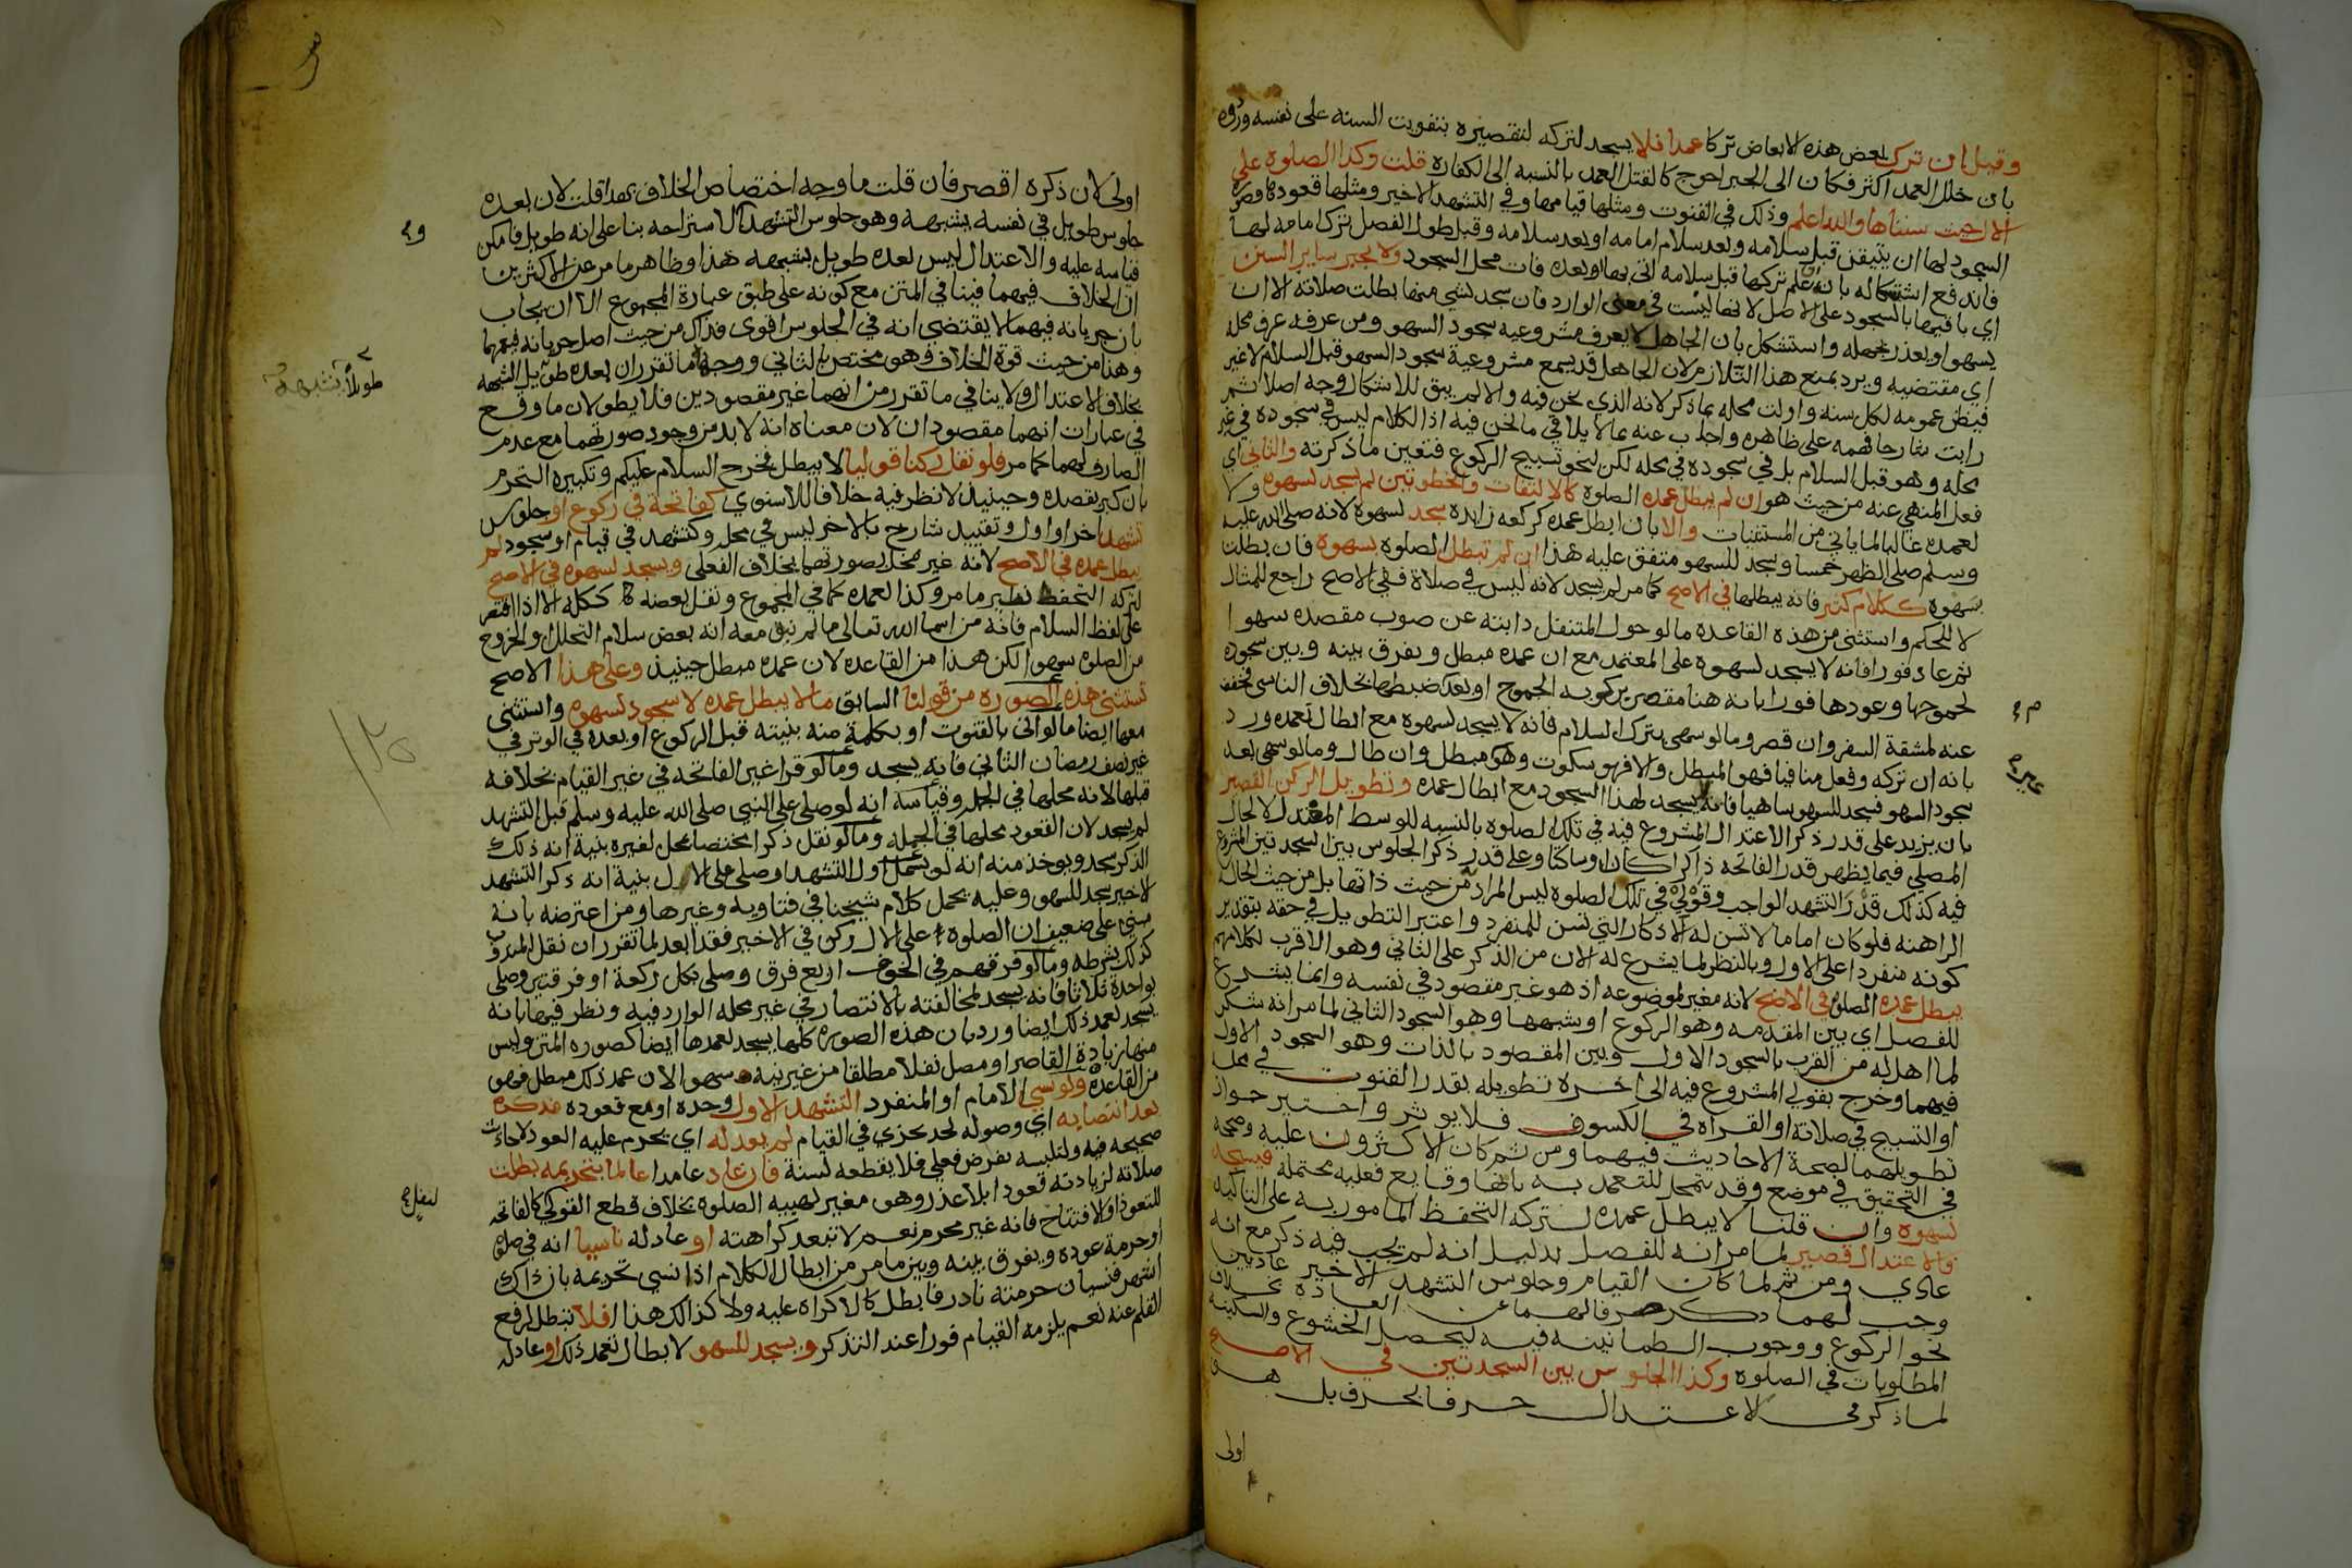 وقيل ان ترك بعض هذه الابعاض تركا عمدا فلا يسجد لتركه لتقصيره بتفويت السنه على نفسه وردوه
بان خلل العمد اكثر فكان الى الجبر احوج كالقتل العمد بالنسبه الى الكفاره قلت وكذا الصلوة على
الال حيث سنناها والله اعلم وذلك في القنوت ومثلها قيامها وفي التشهد الاخير ومثلها قعودها وصورة
السجود لها ان يتيقن قبل سلامه وبعد سلام امامه او بعد سلامه وقبل طول الفصل ترك امامه لها
فاندفع استشكاله بانه ان علم تركها قبل سلامه اتى بها او بعده فات محل السجود ولا يجبر ساير السنن
اي باقيها بالسجود على الاصل لانها ليست في معنى الوارد فان سجد لشي منها بطلت صلاته الا ان
يسهو او يعذر بجهله واستشكل بان الجاهل لا يعرف مشروعيه سجود السهو ومن عرفه عرف محله
اي مقتضيه ويرد بمنع هذا التلازم لان الجاهل قد يسمع مشروعية سجود السهو قبل السلام لا غير
فيظن عمومه لكل سنه واولت محله بما ذكر لانه الذي نحن فيه والا لم يبق للاشكال وجه اصلا ثم
رايت شارحا فهمه على ظاهره واجاب عنه بما لا يلاقي ما نحن فيه اذ الكلام ليس في سجوده في غير
محله وهو قبل السلام بل في سجوده في محله لكن لنحو تسبيح الركوع فتعين ما ذكرته والثاني اي
فعل المنهي عنه من حيث هو ان لم يبطل عمده الصلوة كالالتفات والخطوتين لم يسجد لسهوه ولا
لعمده غالبا لما ياتي من المستثنيات والا بان ابطل عمده كركعه زايده سجد لسهوه لانه صلى الله عليه
وسلم صلى الظهر خمسا وسجد للسهو متفق عليه هذا ان لم تبطل الصلوة بسهوه فان بطلت
بسهوه ككلام كثير فانه يبطلها في الاصح كما مر لم يسجد لانه ليس في صلاة ففي الاصح راجع للمثال
لا للحكم واستثنى من هذه القاعدة ما لو حول المتنفل دابته عن صوب مقصده سهوا
ثم عاد فورا فانه لا يسجد لسهوه على المعتمد مع ان عمده مبطل ويفرق بينه وبين سجوده
لجموحها وعودها فورا بانه هنا مقصر بركوبه الجموح او بعدم ضبطها بخلاف الناسي فخفف
عنه لمشقة السفر وان قصر وما لو سهى بترك السلام فانه لا يسجد لسهوه مع ابطال تعمده ورد
بانه ان تركه وفعل منافيا فهو المبطل والا فهو سكوت وهو غير مبطل وان طال وما لو سهى بعد
سجود السهو فسجد للسهو ساهيا فانه لا يسجد لهذا السجود مع ابطال عمده وتطويل الركن القصير
بان يزيد على قدر ذكر الاعتدال المشروع فيه في تلك الصلوة بالنسبه للوسط المعتدل لا لحال
المصلي فيما يظهر قدر الفاتحه ذاكرا كان او ساكتا وعلى قدر ذكر الجلوس بين السجدتين المشروع
فيه كذلك قدر التشهد الواجب وقولي في تلك الصلوه ليس المراد من حيث ذاتها بل من حيث الحاله
الراهنه فلو كان اماما لا تسن له الاذكار التي تسن للمنفرد واعتبر التطويل في حقه بتقدير
كونه منفردا على الاول وبالنظر لما يشرع له الان من الذكر على الثاني وهو الاقرب لكلامهم
يبطل عمده الصلوة في الاصح لانه مغير لموضوعه اذ هو غير مقصود في نفسه وانما يشرع
للفصل اي بين المقدمه وهو الركوع او شبهها وهو السجود الثاني لما مر انه شكر
لما اهله من القرب بالسجود الاول وبين المقصود بالذات وهو السجود الاول
فيهما وخرج بقولي المشروع فيه الى اخره تطويله بقدر القنوت في محله
او التسبيح في صلاته او القراه في الكسوف فلا يوثر واختير جواز
تطويلهما لصحة الاحاديث فيهما ومن ثم كان الاكثرون عليه وصححه
في التحقيق في موضع وقد يتمحل للتعمد به بانها وقايع فعليه محتمله فيسجد
لسهوه وان قلنا لا يبطل عمده لتركه التحفظ المامور به على التاكيد
والاعتدال قصير لما مر انه للفصل بدليل انه لم يجب فيه ذكر مع انه
عادي ومن ثم لما كان القيام وجلوس التشهد الاخير عاديين
وجب لهما ذكر صرفا لهما عن العادة بخلاف
نحو الركوع ووجوب الطمانينه فيه ليحصل الخشوع والسكينه
المطلوبات في الصلوة وكذا الجلوس بين السجدتين في الاصح
لما ذكر في الاعتدال حرفا بحرف بل هو
اولى
م ع
غير ه
اولى لان ذكره اقصر فان قلت ما وجه اختصاص الخلاف بهذا قلت لان بعده
جلوس طويل في نفسه يشبهه وهو جلوس التشهد لا استراحه بنا على انه طويل فامكن
قياسه عليه والاعتدال ليس بعده طويل يشبهه هذا وظاهر ما مر عن الاكثرين
ان الخلاف فيهما فينافي المتن مع كونه على طبق عبارة المجموع الا ان يجاب
بان جريانه فيهما لا يقتضي انه في الجلوس اقوى فذاك من حيث اصل جريانه فيهما
وهنا من حيث قوة الخلاف فهو مختص بالثاني ووجهه ما تقرر ان بعده طويل اشبهه
بخلاف الاعتدال ولا ينافي ما تقرر من انهما غير مقصودين فلا يطولان ما وقع
في عبارات انهما مقصودان لان معناه انه لا بد من وجود صورتهما مع عدم
الصارف لهما كما مر فلو نقل ركنا قوليا لا يبطل فخرج السلام عليكم وتكبيره التحرم
بان كبر بقصده وحينيذ لا نظر فيه خلافا للاسنوي كفاتحة في ركوع او جلوس
تشهد اخر او اول وتقييد شارح بالاخر ليس في محله وكتشهد في قيام او سجود لم
يبطل عمده في الاصح لانه غير مخل بصورتهما بخلاف الفعلى ويسجد لسهوه في الاصح
لتركه التحفظ نظير ما مر وكذا لعمده كما في المجموع ونقل بعضه ككله الا اذا اقتصر
على لفظ السلام فانه من اسما الله تعالى ما لم ينو معه انه بعض سلام التحلل او الخروج
من الصلوه سهوا لكن هذا من القاعده لان عمده مبطل حينيذ وعلى هذا الاصح
تستثنى هذه الصوره من قولنا السابق ما لا يبطل عمده لا سجود لسهوه واستثنى
معها ايضا ما لو اتى بالقنوت او بكلمة منه بنيته قبل الركوع او بعده في الوتر في
غير نصف رمضان الثاني فانه يسجد وما لو قرا غير الفاتحه في غير القيام بخلافه
قبلها لانه محلها في الجمله وقياسه انه لو صلى على النبي صلى الله عليه وسلم قبل التشهد
لم يسجد لان القعود محلها في الجمله وما لو نقل ذكرا مختصا بمحل لغيره بنية انه ذلك
الذكر سجد ويوخذ منه انه لو بسمل اول التشهد او صلى على الال بنية انه ذكر التشهد
الاخير سجد للسهو وعليه يحمل كلام شيخنا في فتاويه وغيرها ومن اعترضه بانه
مبني على ضعيف ان الصلوة على الال ركن في الاخير فقد ابعد لما تقرر ان نقل المندوب
كذلك بشرطه وما لو فرقهم في الخوف اربع فرق وصلى بكل ركعة او فرقتين وصلى
بواحدة ثلاثا فانه يسجد لمخالفته بالانتصار في غير محله الوارد فيه ونظر فيها بانه
يسجد لعمد ذلك ايضا ورد بان هذه الصوره كلها يسجد لعمدها ايضا كصوره المتن وليس
منها زيادة القاصر او مصل نفلا مطلقا من غير نيه سهوا لان عمد ذلك مبطل فهو
من القاعده ولو نسي الامام او المنفرد التشهد الاول وحده او مع قعوده فذكره
بعد انتصابه اي وصوله لحد يجزي في القيام لم يعد له اي يحرم عليه العود لاحاديث
صحيحه فيه ولتلبسه بفرض فعلي فلا يقطعه لسنة فان عاد عامدا عالما بتحريمه بطلت
صلاته لزيادته قعودا بلا عذر وهو مغير لهييه الصلوه بخلاف قطع القولي كالفاتحه
للتعوذ او الافتتاح فانه غير محرم نعم لا تبعد كراهته او عاد له ناسيا انه في صلوة
او حرمة عوده ويفرق بينه وبين ما مر من ابطال الكلام اذا نسي تحريمه بان ذاك
اشهر فنسيان حرمته نادر فابطل كالاكراه عليه ولا كذلك هذا فلا تبطل لرفع
القلم عنه نعم يلزمه القيام فورا عند التذكر ويسجد للسهو لابطال تعمد ذلك او عاد له
طويلا يشبهه